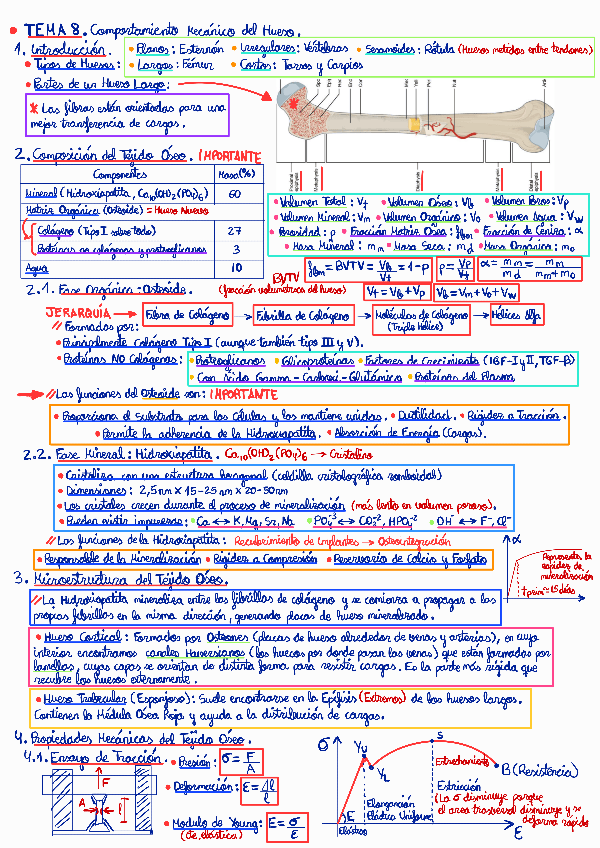 • TEMA 8. Comportamiento Mecánico del Hueso.
1. Introducción.
• Planos: Esternón • Irregulares: Vértebras • Sesamoides: Rótula (Huesos metidos entre tendones)
• Tipos de Huesos:
• Largos: Fémur • Cortos: Tarsos y Carpios
• Partes de un Hueso Largo:
* Las fibras están orientadas para una
mejor transferencia de cargas.
2. Composición del Tejido Óseo. IMPORTANTE
Componentes Masa(%)
Mineral (Hidroxiapatita, Ca10(OH)2(PO4)6) 60
Matriz Orgánica (Osteoide) = Hueso Nuevo
Colágeno (Tipo I sobre todo) 27
Proteínas no colágenas y proteoglicanos 3
Agua 10
• Volumen Total: Vt • Volumen Óseo: Vb • Volumen Poros: Vp
• Volumen Mineral: Vm • Volumen Orgánico: Vo • Volumen Agua: Vw
• Porosidad: p • Fracción Matriz Ósea: fbm • Fracción de Ceniza: α
• Masa Mineral: mm • Masa Seca: md • Masa Orgánica: mo
fbm = BVTV = Vb/Vt = 1-p p = Vp/Vt α = mm/md = mm/(mm+mo)
BVTV
(fracción volumétrica del hueso) Vt = Vb+Vp Vb = Vm+Vo+Vw
2.1. Fase Orgánica: Osteoide.
JERARQUÍA → Fibra de Colágeno → Fibrilla de Colágeno → Moléculas de Colágeno (Triple Hélice) → Hélices Alfa
// Formados por:
• Principalmente Colágeno Tipo I (aunque también tipo III y V).
• Proteínas NO Colágenas: • Proteoglicanos • Glicoproteínas • Factores de Crecimiento (IGF-I y II, TGF-β)
• Con Ácido Gamma-Carboxi-Glutámico • Proteínas del Plasma
→ // Las funciones del Osteoide son: IMPORTANTE
• Proporciona el Substrato para las Células y las mantiene unidas. • Ductilidad. • Rigidez a Tracción.
• Permite la adherencia de la Hidroxiapatita. • Absorción de Energía (Cargas).
2.2. Fase Mineral: Hidroxiapatita. Ca10(OH)2(PO4)6 --> Cristalino
• Cristaliza con una estructura hexagonal (celdilla cristalográfica romboidal)
• Dimensiones: 2,5nm x 15-25nm x 20-50nm
• Los cristales crecen durante el proceso de mineralización (más lento en volumen poroso).
• Pueden existir impurezas: • Ca ↔ K, Mg, Sr, Na • PO4-3 ↔ CO3-2, HPO4-2 • OH- ↔ F-, Cl-
// Las funciones de la Hidroxiapatita: Recubrimiento de Implantes → Osteointegración
• Responsable de la Mineralización • Rigidez a Compresión • Reservorio de Calcio y Fosfato
α
Representa la
rapidez de
mineralización
t
3. Microestructura del Tejido Óseo.
// La Hidroxiapatita mineraliza entre las fibrillas de colágeno y se comienza a propagar a las
propias fibrillas en la misma dirección, generando placas de hueso mineralizado.
• Hueso Cortical: Formados por Osteones (placas de hueso alrededor de venas y arterias), en cuyo
interior encontramos canales Haversianos (los huecos por donde pasan las venas) que están formados por
lamellas, cuyas capas se orientan de distinta forma para resistir cargas. Es la parte más rígida que
recubre los huesos externamente.
• Hueso Trabecular (Esponjoso): Suele encontrarse en la Epífisis (Extremos) de los huesos largos.
Contienen la Médula Ósea Roja y ayuda a la distribución de cargas.
4. Propiedades Mecánicas del Tejido Óseo.
4.1. Ensayo de Tracción. • Presión: σ = F/A
• Deformación: ε = Δl/l
• Modulo de Young: E = σ/ε
(de elástica)
F
A
l
σ
YU
YL
S
B (Resistencia)
Estrechamiento
Estricción
(La σ disminuye porque
el area trasversal disminuye y se
deforma rápido
Elongación
Elástica Uniforme
E
Elástico
ε